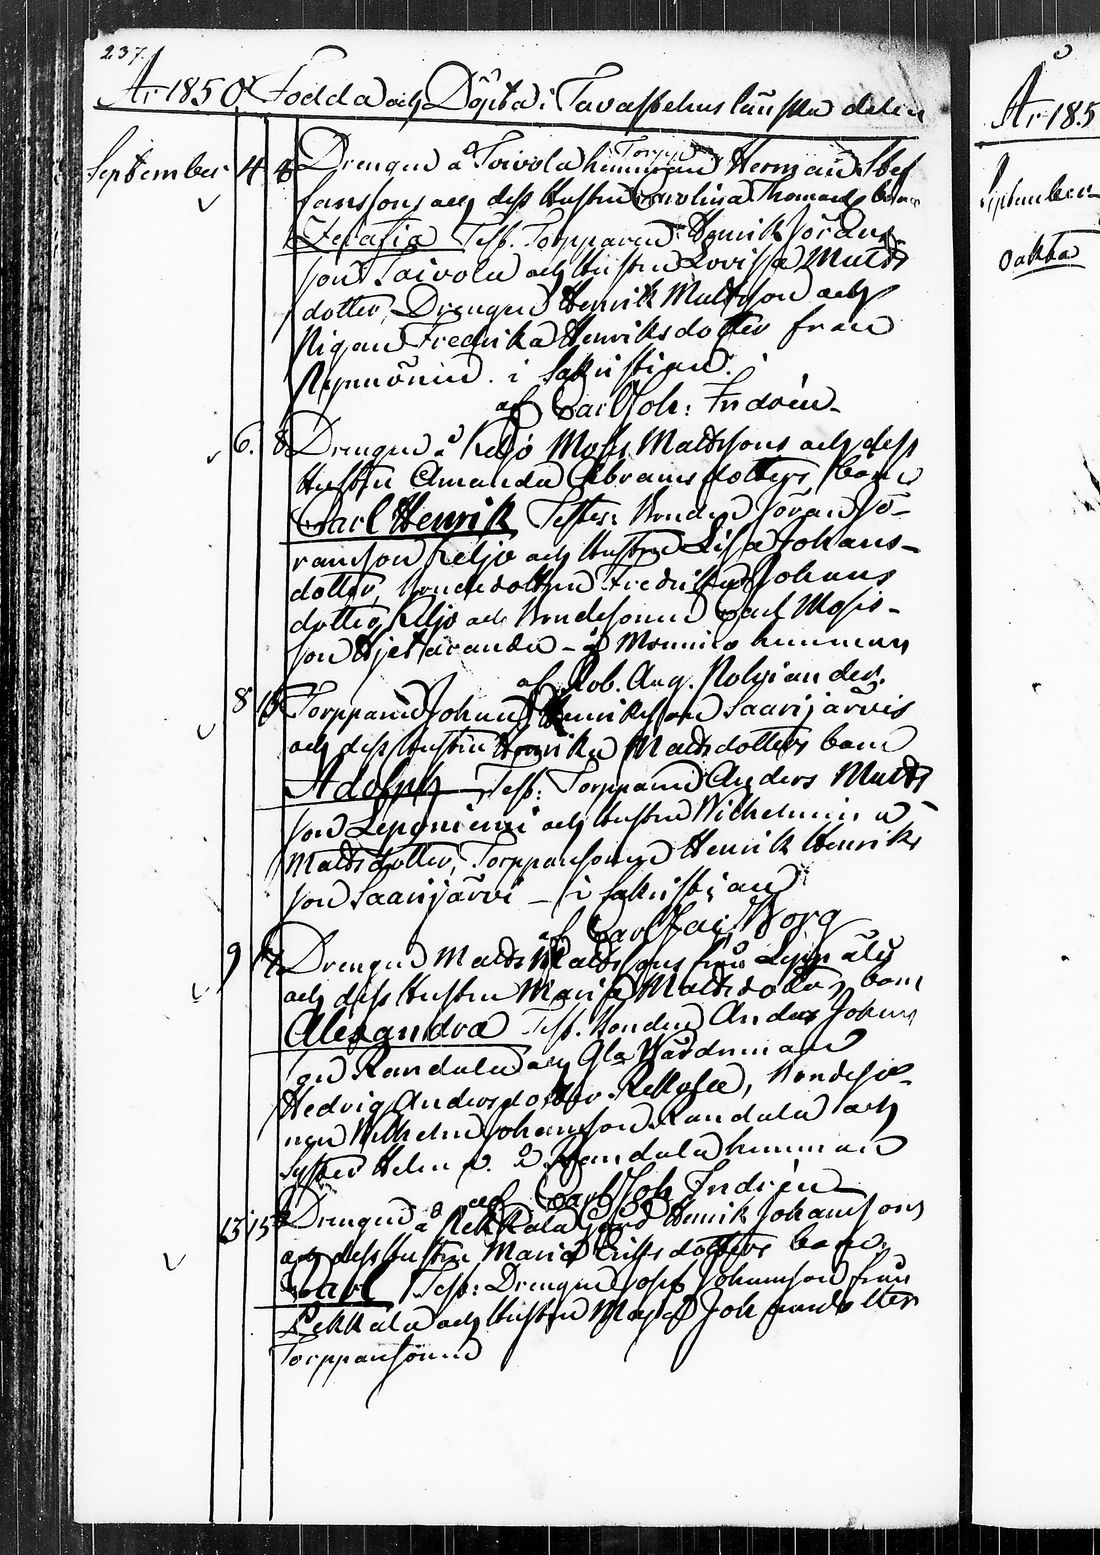 237.
År 1850 Födda och Döpta i Tavastehus länska delen
September 4 8 Drengen å Toivola hemman Torpp Herman Stef
fanssons och dess hustru Carolina Thomasd. barn
Serafia Test. Torpparen Henrik Jörans
son Toivola och hustrun Lovisa Matts
dotter, Drengen Henrik Mattsson och
Pigan Fredrika Henriksdotter från
i Sakristian.
af Carl Joh: Indrén
6. 8 Drengen å Keljo Moses Mattssons och dess
hustru Amanda Abramsdotters barn
Carl Henrik Testes: Bonden Jöran Jö-
ransson Keljo och hustrun Lisa Johans-
dotter, Bondedottren Fredrika Johans
dotter Keljo och Bondesonen Carl Moses-
son å hemman
af Rob. Aug. Polviander.
8 15 Torpparen Johan Henriksson Saarijärvis
och dess hustru Henrika Mattsdotters barn
Adolph Test: Torpparen Anders Matts
son Leponiemi och hustrun Wilhelmina
Mattsdotter, Torpparsonen Henrik Henriks
son Saarijärvi – i Sakristian
af Carl Borg
9 Drengen Matts Mattssons från
och dess hustru Maria Mattsdotters barn
Alexandra Test. Bonden Anders Johans
son Randala och
Hedvig Andersdotter Rekkola, Bondeso-
nen Wilhelm Johansson Randala och
Syster Helena. å Randala hemman
af Carl Joh Indrén
13 15 Drengen å Rekkala gård Henrik Johanssons
och dess hustru Maria Eriksdotters barn
Carl Test: Drengen Josef Johansson från
Rekkala och hustrun Johansdotter
Torpparsonen
År 185
September
Oakta